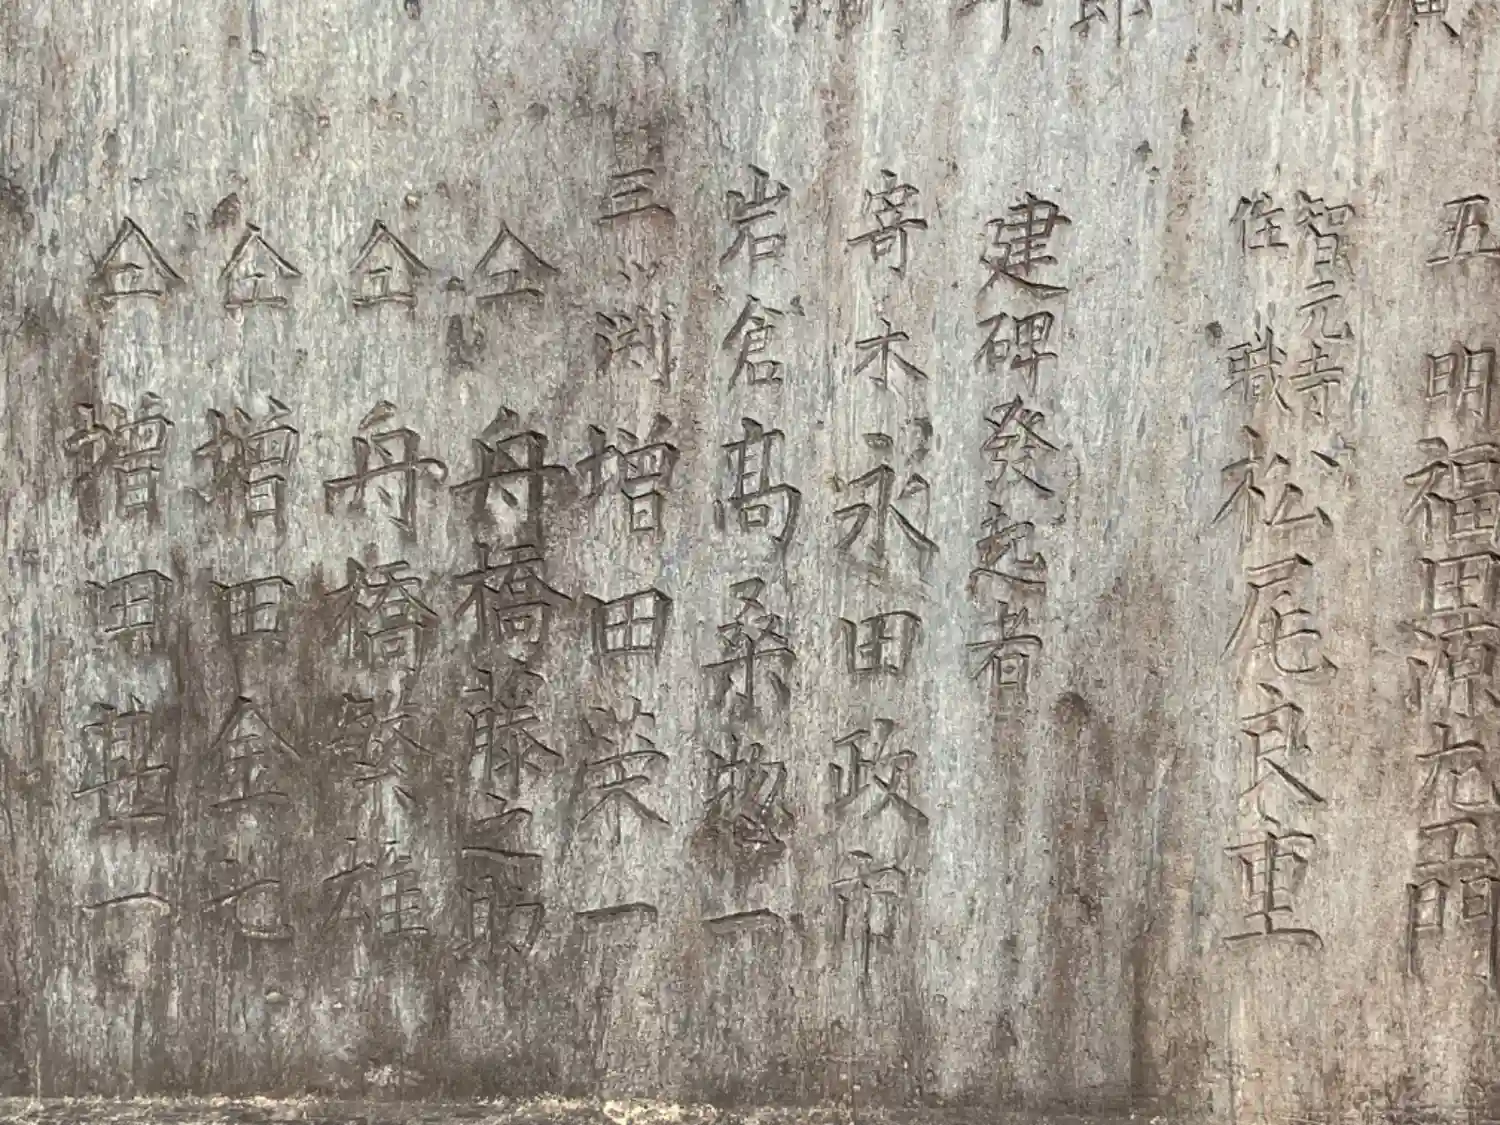 五明 福田源右エ門
智元寺
住職 松尾良重
建碑発起者
寄木 永田政市
岩倉 髙桒惣一
三渕 増田栄一
仝 舟橋藤之助
仝 舟橋繁雄
仝 増田金七
仝 増田甚一